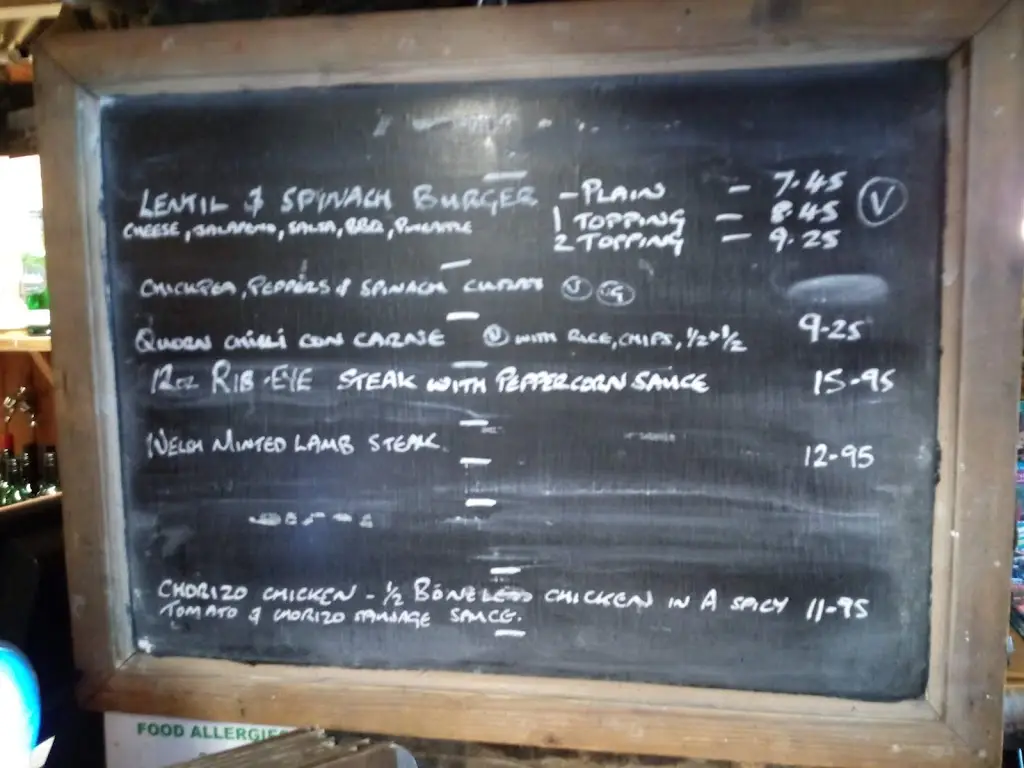 LENTIL & SPINACH BURGER - PLAIN - 7.45 V
CHEESE, JALAPENO, SALSA, BBQ, PINEAPPLE 1 TOPPING - 8.45
2 TOPPING - 9.25
CHICKPEA, PEPPERS & SPINACH CURRY V G
QUORN CHILLI CON CARNE V WITH RICE, CHIPS, 1/2 + 1/2 9-25
12oz RIB-EYE STEAK WITH PEPPERCORN SAUCE 15-95
WELSH MINTED LAMB STEAK. 12-95
CHORIZO CHICKEN - 1/2 BONELESS CHICKEN IN A SPICY 11-95
TOMATO & CHORIZO SAUSAGE SAUCE.
FOOD ALLERGIES